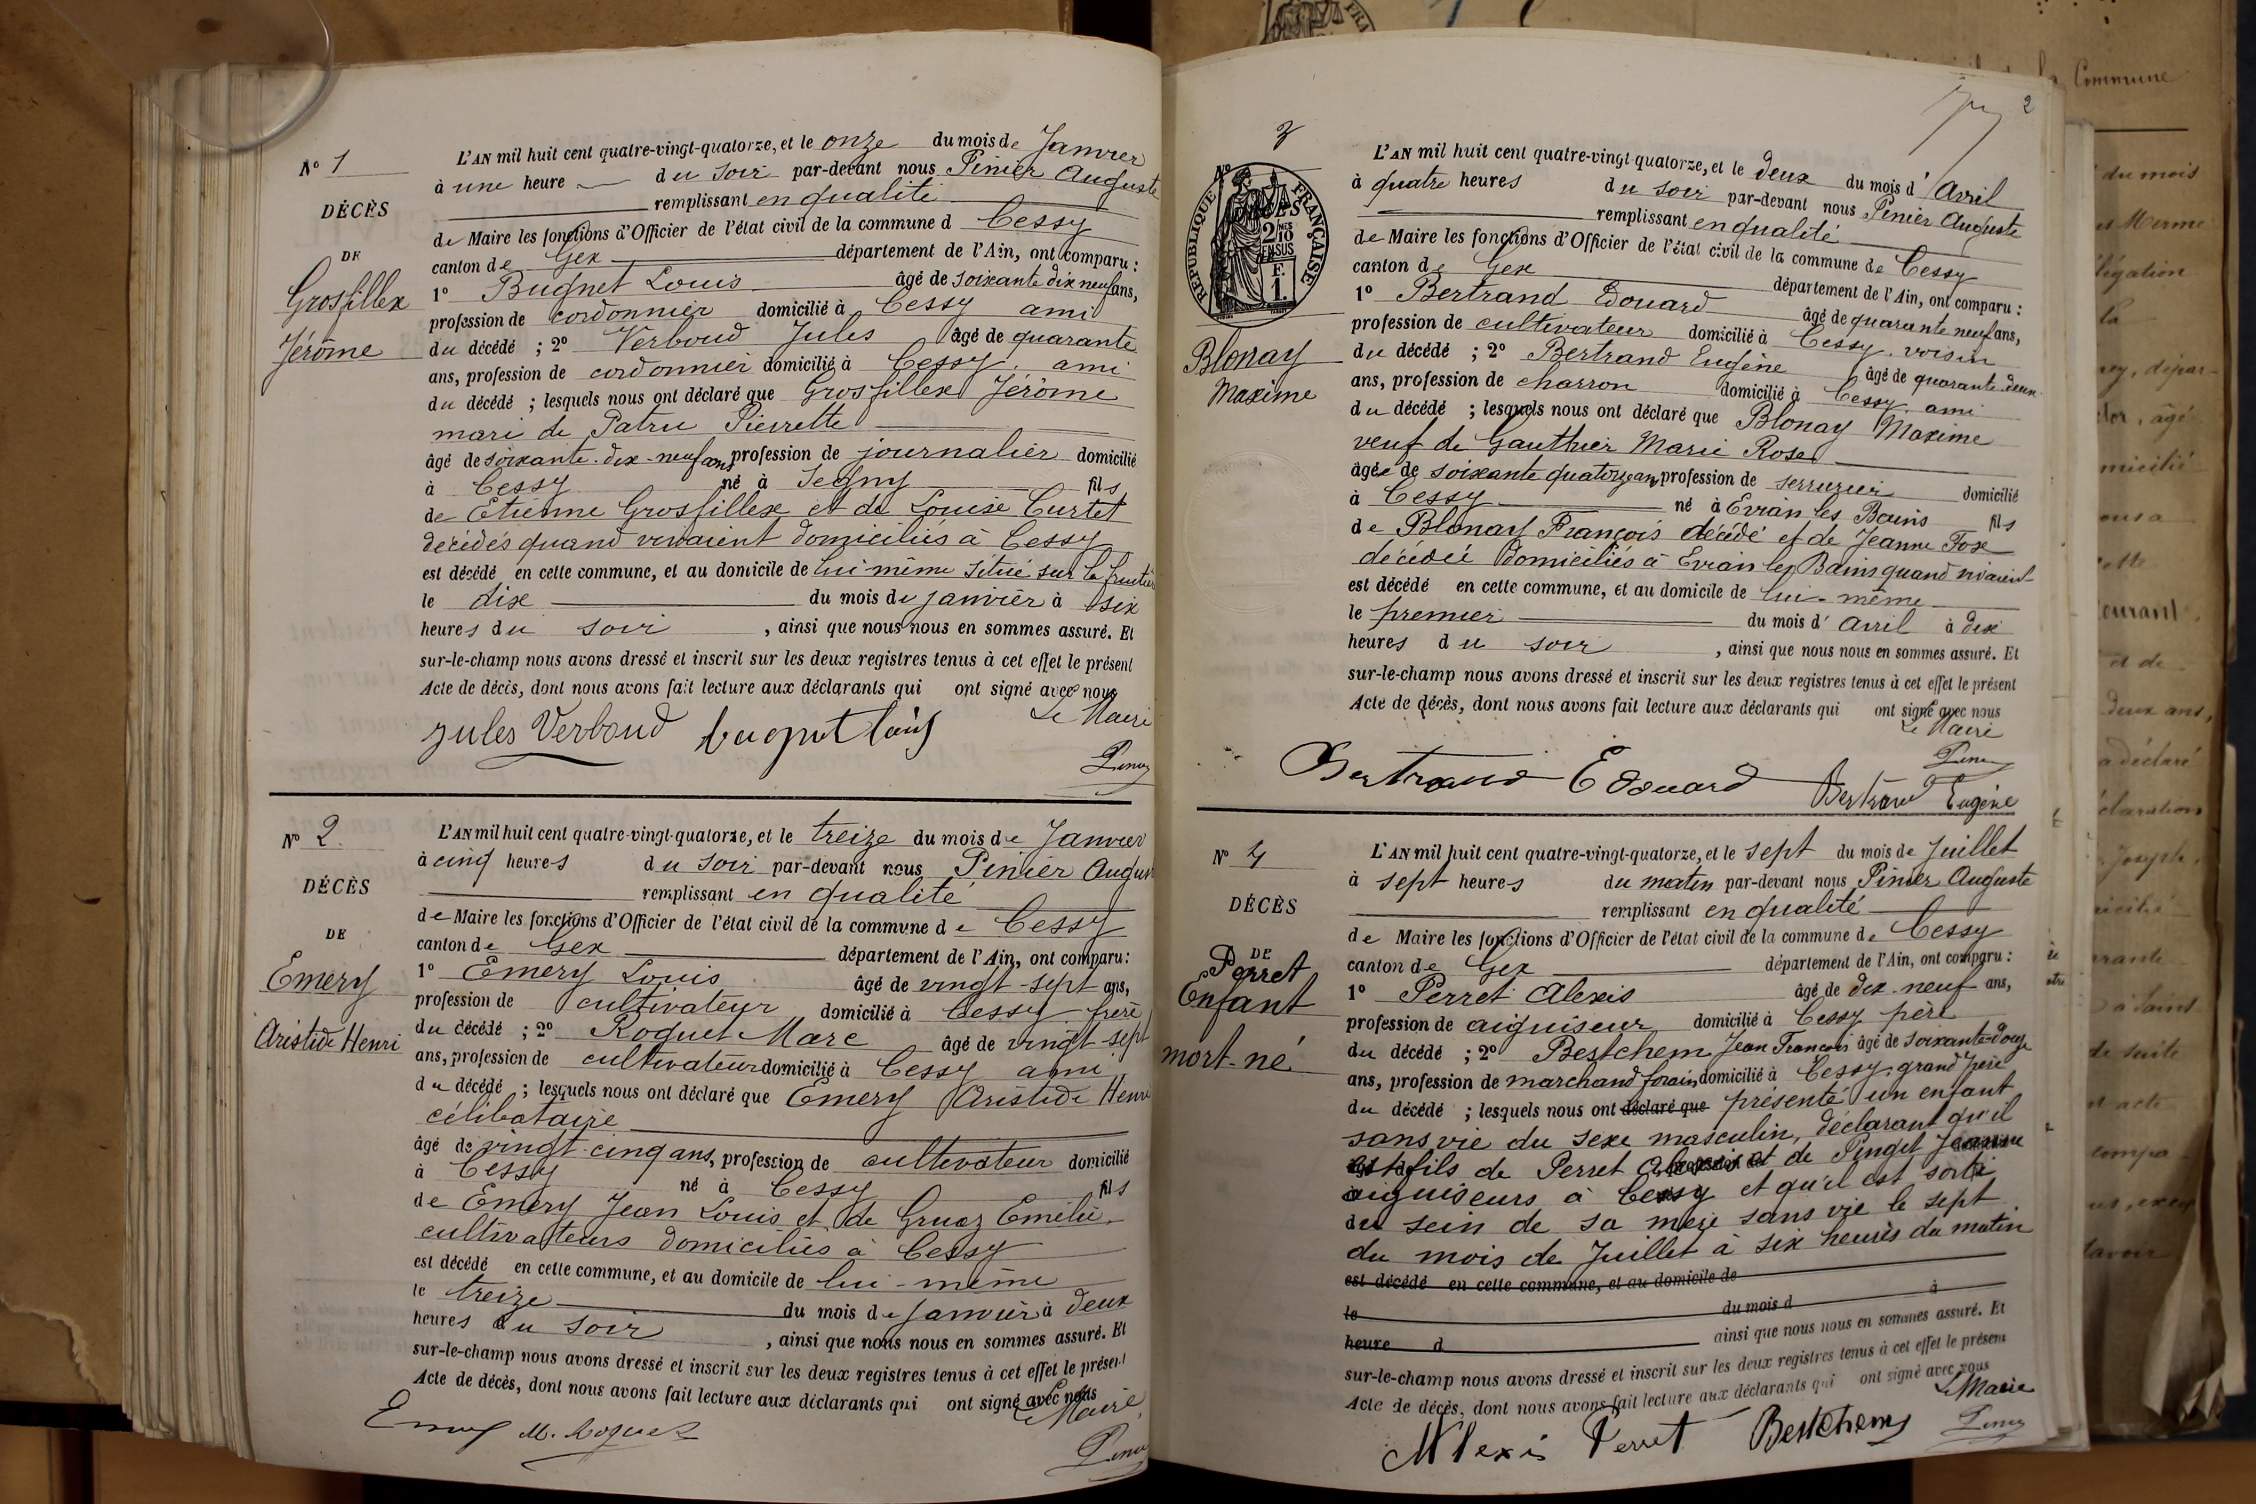 N° 1
DÉCÈS
DE
Grosfillex
Jérôme
L'AN mil huit cent quatre-vingt-quatorze, et le onze du mois de Janvier
à une heure du soir par-devant nous Pinier Auguste
remplissant en qualité
de Maire les fonctions d'Officier de l'état civil de la commune d Cessy
canton de Gex département de l'Ain, ont comparu :
1° Bugnet Louis âgé de soixante dix neuf ans,
profession de cordonnier domicilié à Cessy ami
du décédé ; 2° Verboud Jules âgé de quarante
ans, profession de cordonnier domicilié à Cessy, ami
du décédé ; lesquels nous ont déclaré que Grosfillex Jérôme
mari de Patru Pierrette
âgé de soixante-dix-neuf ans profession de journalier domicilié
à Cessy né à Segny fils
de Etienne Grosfillex et de Louise Curtet
décédés quand vivaient domiciliés à Cessy
est décédé en cette commune, et au domicile de lui même situé sur la
le dix du mois de janvier à six
heures du soir , ainsi que nous nous en sommes assuré. Et
sur-le-champ nous avons dressé et inscrit sur les deux registres tenus à cet effet le présent
Acte de décès, dont nous avons fait lecture aux déclarants qui ont signé avec nous
Le Maire
Jules Verboud buqnet louis
Pinier
N° 2
DÉCÈS
DE
Emery
Aristide Henri
L'AN mil huit cent quatre-vingt-quatorze, et le treize du mois de Janvier
à cinq heures du soir par-devant nous Pinier August
remplissant en qualité
de Maire les fonctions d'Officier de l'état civil de la commune de Cessy
canton de Gex département de l'Ain, ont comparu :
1° Emery Louis âgé de vingt-sept ans,
profession de cultivateur domicilié à Cessy frère
du décédé ; 2° Roquet Marc âgé de vingt-sept
ans, profession de cultivateur domicilié à Cessy ami
du décédé ; lesquels nous ont déclaré que Emery Aristide Henri
célibataire
âgé de vingt-cinq ans, profession de cultivateur domicilié
à Cessy né à Cessy fils
de Emery Jean Louis et de Gruaz Emélie
cultivateurs domiciliés à Cessy
est décédé en cette commune, et au domicile de lui-même
le treize du mois de janvier à deux
heures du soir , ainsi que nous nous en sommes assuré. Et
sur-le-champ nous avons dressé et inscrit sur les deux registres tenus à cet effet le présent
Acte de décès, dont nous avons fait lecture aux déclarants qui ont signé avec nous
Le Maire
Emery M. Roquet
Pinier
2
3
N°
DÉCÈS
RÉPUBLIQUE FRANÇAISE
2 MES 10 EN SUS
F. 1.
Blonay
Maxime
L'AN mil huit cent quatre-vingt-quatorze, et le deux du mois d' Avril
à quatre heures du soir par-devant nous Pinier Auguste
remplissant en qualité
de Maire les fonctions d'Officier de l'état civil de la commune de Cessy
canton de Gex département de l'Ain, ont comparu :
1° Bertrand Edouard âgé de quarante neuf ans,
profession de cultivateur domicilié à Cessy, voisin
du décédé ; 2° Bertrand Eugène âgé de quarante-deux
ans, profession de charron domicilié à Cessy, ami
du décédé ; lesquels nous ont déclaré que Blonay Maxime
veuf de Gauthier Marie Rose
âgée de soixante quatorze ans profession de serrurier domicilié
à Cessy né à Evian les Bains fils
de Blonay François décédé et de Jeanne Fox
décédée domiciliés à Evian les Bains quand vivaient
est décédé en cette commune, et au domicile de lui-même
le premier du mois d' avril à dix
heures du soir , ainsi que nous nous en sommes assuré. Et
sur-le-champ nous avons dressé et inscrit sur les deux registres tenus à cet effet le présent
Acte de décès, dont nous avons fait lecture aux déclarants qui ont signé avec nous
Le Maire
Pinier
Bertrand Edouard Bertrand Eugène
N° 4
DÉCÈS
DE
Perret
Enfant
mort-né
L'AN mil huit cent quatre-vingt-quatorze, et le sept du mois de Juillet
à sept heures du matin par-devant nous Pinier Auguste
remplissant en qualité
de Maire les fonctions d'Officier de l'état civil de la commune de Cessy
canton de Gex département de l'Ain, ont comparu :
1° Perret Alexis âgé de dix-neuf ans,
profession de aiguiseur domicilié à Cessy père
du décédé ; 2° Bestchem Jean François âgé de soixante-douze
ans, profession de marchand forain domicilié à Cessy, grand père
du décédé ; lesquels nous ont déclaré que présenté un enfant
sans vie du sexe masculin, déclarant qu'il
est fils de Perret Alexis et de Pinget Jeanne
aiguiseurs à Cessy et qu'il est sorti
du sein de sa mère sans vie le sept
du mois de Juillet à six heures du matin
est décédé en cette commune, et au domicile de
le du mois d à
heure d ainsi que nous nous en sommes assuré. Et
sur-le-champ nous avons dressé et inscrit sur les deux registres tenus à cet effet le présent
Acte de décès, dont nous avons fait lecture aux déclarants qui ont signé avec nous
Le Maire
Alexis Perret Bestchem
Pinier
Commune
du mois
légation
la
âgé
deux ans,
a déclaré
Joseph,
à Saint
de suite
acte